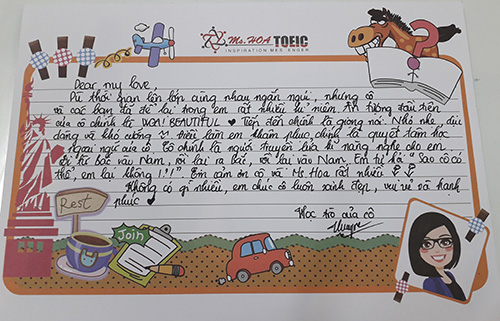 Ms.HOA TOEIC
INSPIRATION MEE ENGER
Dear my love,
Dù thời gian lên lớp cùng nhau ngắn ngủi, nhưng cô
và các bạn đã để lại trong em rất nhiều kỉ niệm. Ấn tượng đầu tiên
của cô chính là WOA! BEAUTIFUL ♥ Tiếp đến chính là giọng nói. Nhỏ nhẹ, dịu
dàng và khó cưỡng. Điều làm em khâm phục chính là quyết tâm học
ngoại ngữ của cô. Cô chính là người truyền lửa kĩ năng nghe cho em.
đi từ Bắc vào Nam, rồi lại ra Bắc, rồi lại vào Nam. Em tự hỏi "Sao cô có
thể, em lại không!?!" Em cảm ơn cô và Ms Hoa rất nhiều
Không có gì nhiều, em chúc cô luôn xinh đẹp, vui vẻ và hạnh
phúc
Học trò của cô
Rest
Join